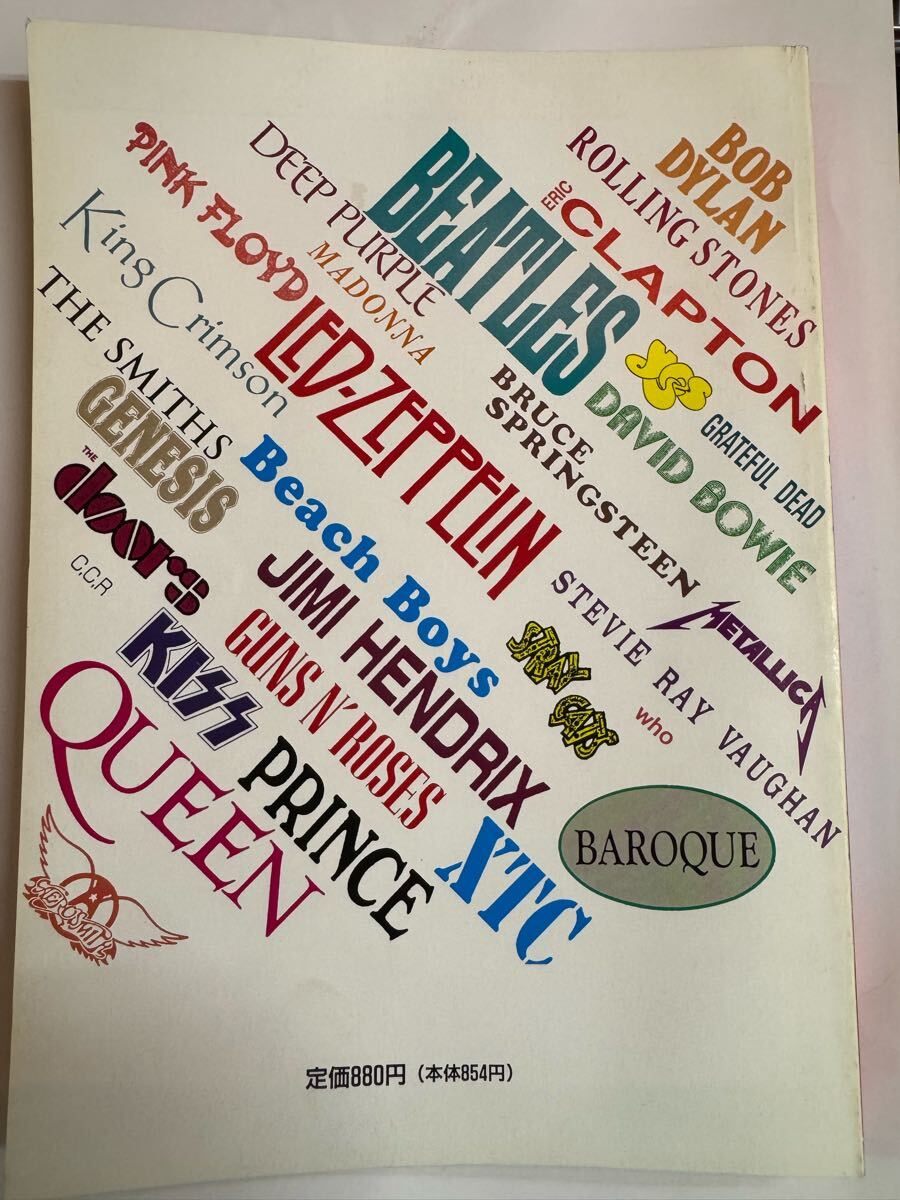 BOB
DYLAN
ROLLING STONES
ERIC
CLAPTON
BEATLES
DEEP PURPLE
MADONNA
PINK FLOYD
King Crimson
THE SMITHS
LED-ZEPPELIN
yes
DAVID BOWIE
GRATEFUL DEAD
BRUCE
SPRINGSTEEN
GENESIS
THE
doors
C.C.R
Beach Boys
JIMI HENDRIX
STEVIE RAY VAUGHAN
METALLICA
STRAY CATS
who
KISS
GUNS N' ROSES
QUEEN
PRINCE
XTC
BAROQUE
AEROSMITH
定価880円（本体854円）